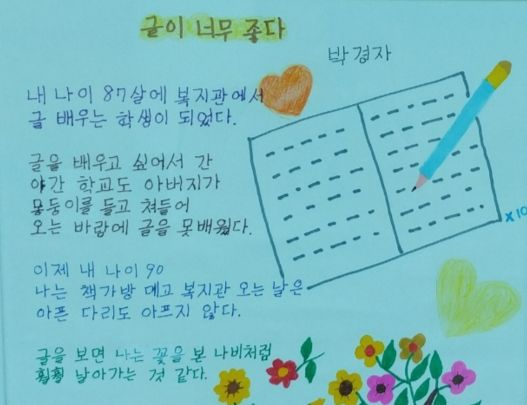 글이 너무 좋다
박경자
내 나이 87살에 복지관에서
글 배우는 학생이 되었다.
글을 배우고 싶어서 간
야간 학교도 아버지가
몽둥이를 들고 쳐들어
오는 바람에 글을 못배웠다.
이제 내 나이 90
나는 책가방 메고 복지관 오는 날은
아픈 다리도 아프지 않다.
글을 보면 나는 꽃을 본 나비처럼
훨훨 날아가는 것 같다.
x10